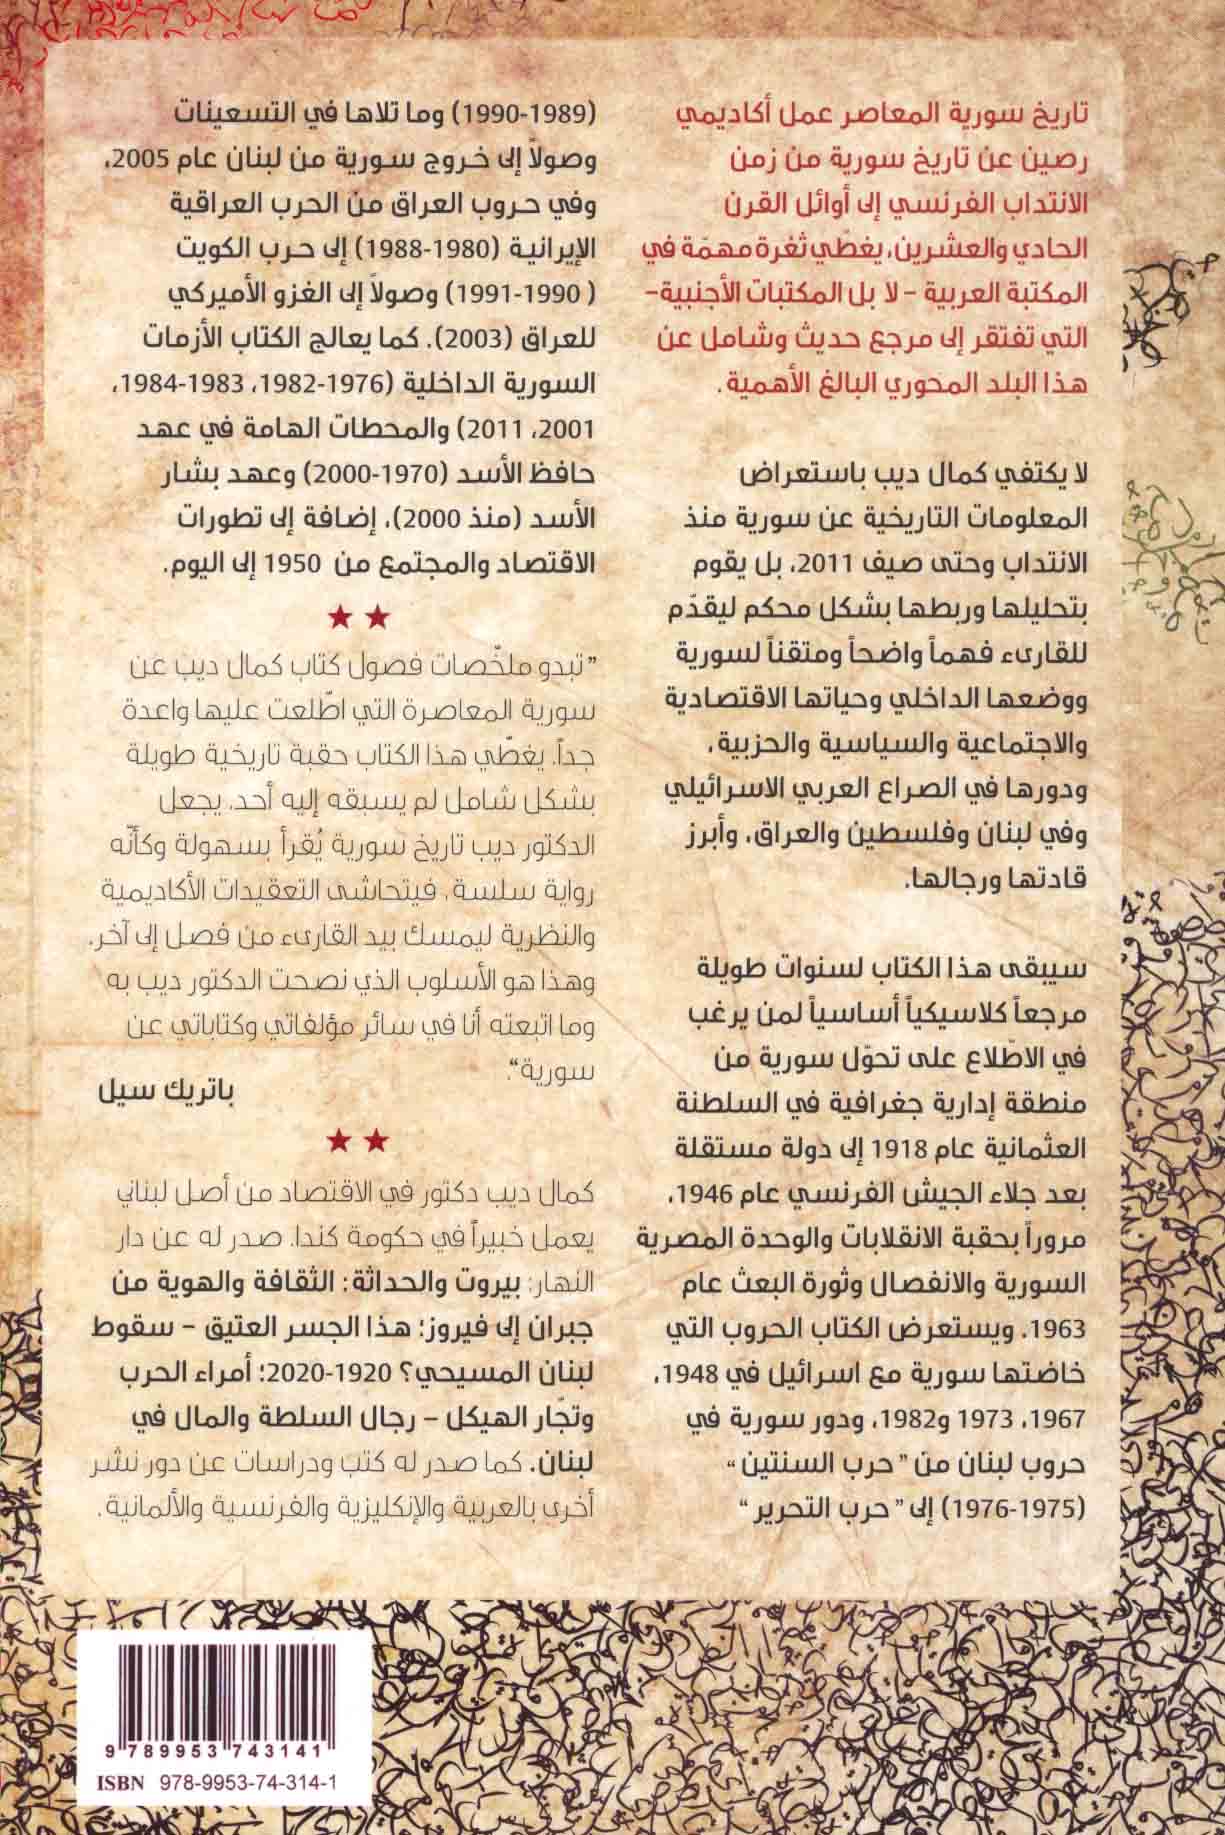 تاريخ سورية المعاصر عمل أكاديمي
رصين عن تاريخ سورية من زمن
الانتداب الفرنسي إلى أوائل القرن
الحادي والعشرين، يغطّي ثغرة مهمّة في
المكتبة العربية – لا بل المكتبات الأجنبية–
التي تفتقر إلى مرجع حديث وشامل عن
هذا البلد المحوري البالغ الأهمية.
لا يكتفي كمال ديب باستعراض
المعلومات التاريخية عن سورية منذ
الانتداب وحتى صيف 2011، بل يقوم
بتحليلها وربطها بشكل محكم ليقدّم
للقارىء فهماً واضحاً ومتقناً لسورية
ووضعها الداخلي وحياتها الاقتصادية
والاجتماعية والسياسية والحزبية،
ودورها في الصراع العربي الاسرائيلي
وفي لبنان وفلسطين والعراق، وأبرز
قادتها ورجالها.
سيبقى هذا الكتاب لسنوات طويلة
مرجعاً كلاسيكياً أساسياً لمن يرغب
في الاطّلاع على تحوّل سورية من
منطقة إدارية جغرافية في السلطنة
العثمانية عام 1918 إلى دولة مستقلة
بعد جلاء الجيش الفرنسي عام 1946،
مروراً بحقبة الانقلابات والوحدة المصرية
السورية والانفصال وثورة البعث عام
1963. ويستعرض الكتاب الحروب التي
خاضتها سورية مع اسرائيل في 1948،
1967، 1973 و1982، ودور سورية في
حروب لبنان من ”حرب السنتين“
(1975-1976) إلى ”حرب التحرير“
(1989-1990) وما تلاها في التسعينات
وصولاً إلى خروج سورية من لبنان عام 2005،
وفي حروب العراق من الحرب العراقية
الإيرانية (1980-1988) إلى حرب الكويت
(1990-1991) وصولاً إلى الغزو الأميركي
للعراق (2003). كما يعالج الكتاب الأزمات
السورية الداخلية (1976-1982، 1983-1984،
2001، 2011) والمحطات الهامة في عهد
حافظ الأسد (1970-2000) وعهد بشار
الأسد (منذ 2000)، إضافة إلى تطورات
الاقتصاد والمجتمع من 1950 إلى اليوم.
★ ★
”تبدو ملخّصات فصول كتاب كمال ديب عن
سورية المعاصرة التي اطّلعت عليها واعدة
جداً. يغطّي هذا الكتاب حقبة تاريخية طويلة
بشكل شامل لم يسبقه إليه أحد. يجعل
الدكتور ديب تاريخ سورية يُقرأ بسهولة وكأنّه
رواية سلسة، فيتحاشى التعقيدات الأكاديمية
والنظرية ليمسك بيد القارىء من فصل إلى آخر.
وهذا هو الأسلوب الذي نصحت الدكتور ديب به
وما اتبعته أنا في سائر مؤلفاتي وكتاباتي عن
سورية“.
باتريك سيل
★ ★
كمال ديب دكتور في الاقتصاد من أصل لبناني
يعمل خبيراً في حكومة كندا. صدر له عن دار
النهار: بيروت والحداثة: الثقافة والهوية من
جبران إلى فيروز؛ هذا الجسر العتيق – سقوط
لبنان المسيحي؟ 1920-2020؛ أمراء الحرب
وتجّار الهيكل – رجال السلطة والمال في
لبنان. كما صدر له كتب ودراسات عن دور نشر
أخرى بالعربية والإنكليزية والفرنسية والألمانية.
9 789953 743141
ISBN 978-9953-74-314-1